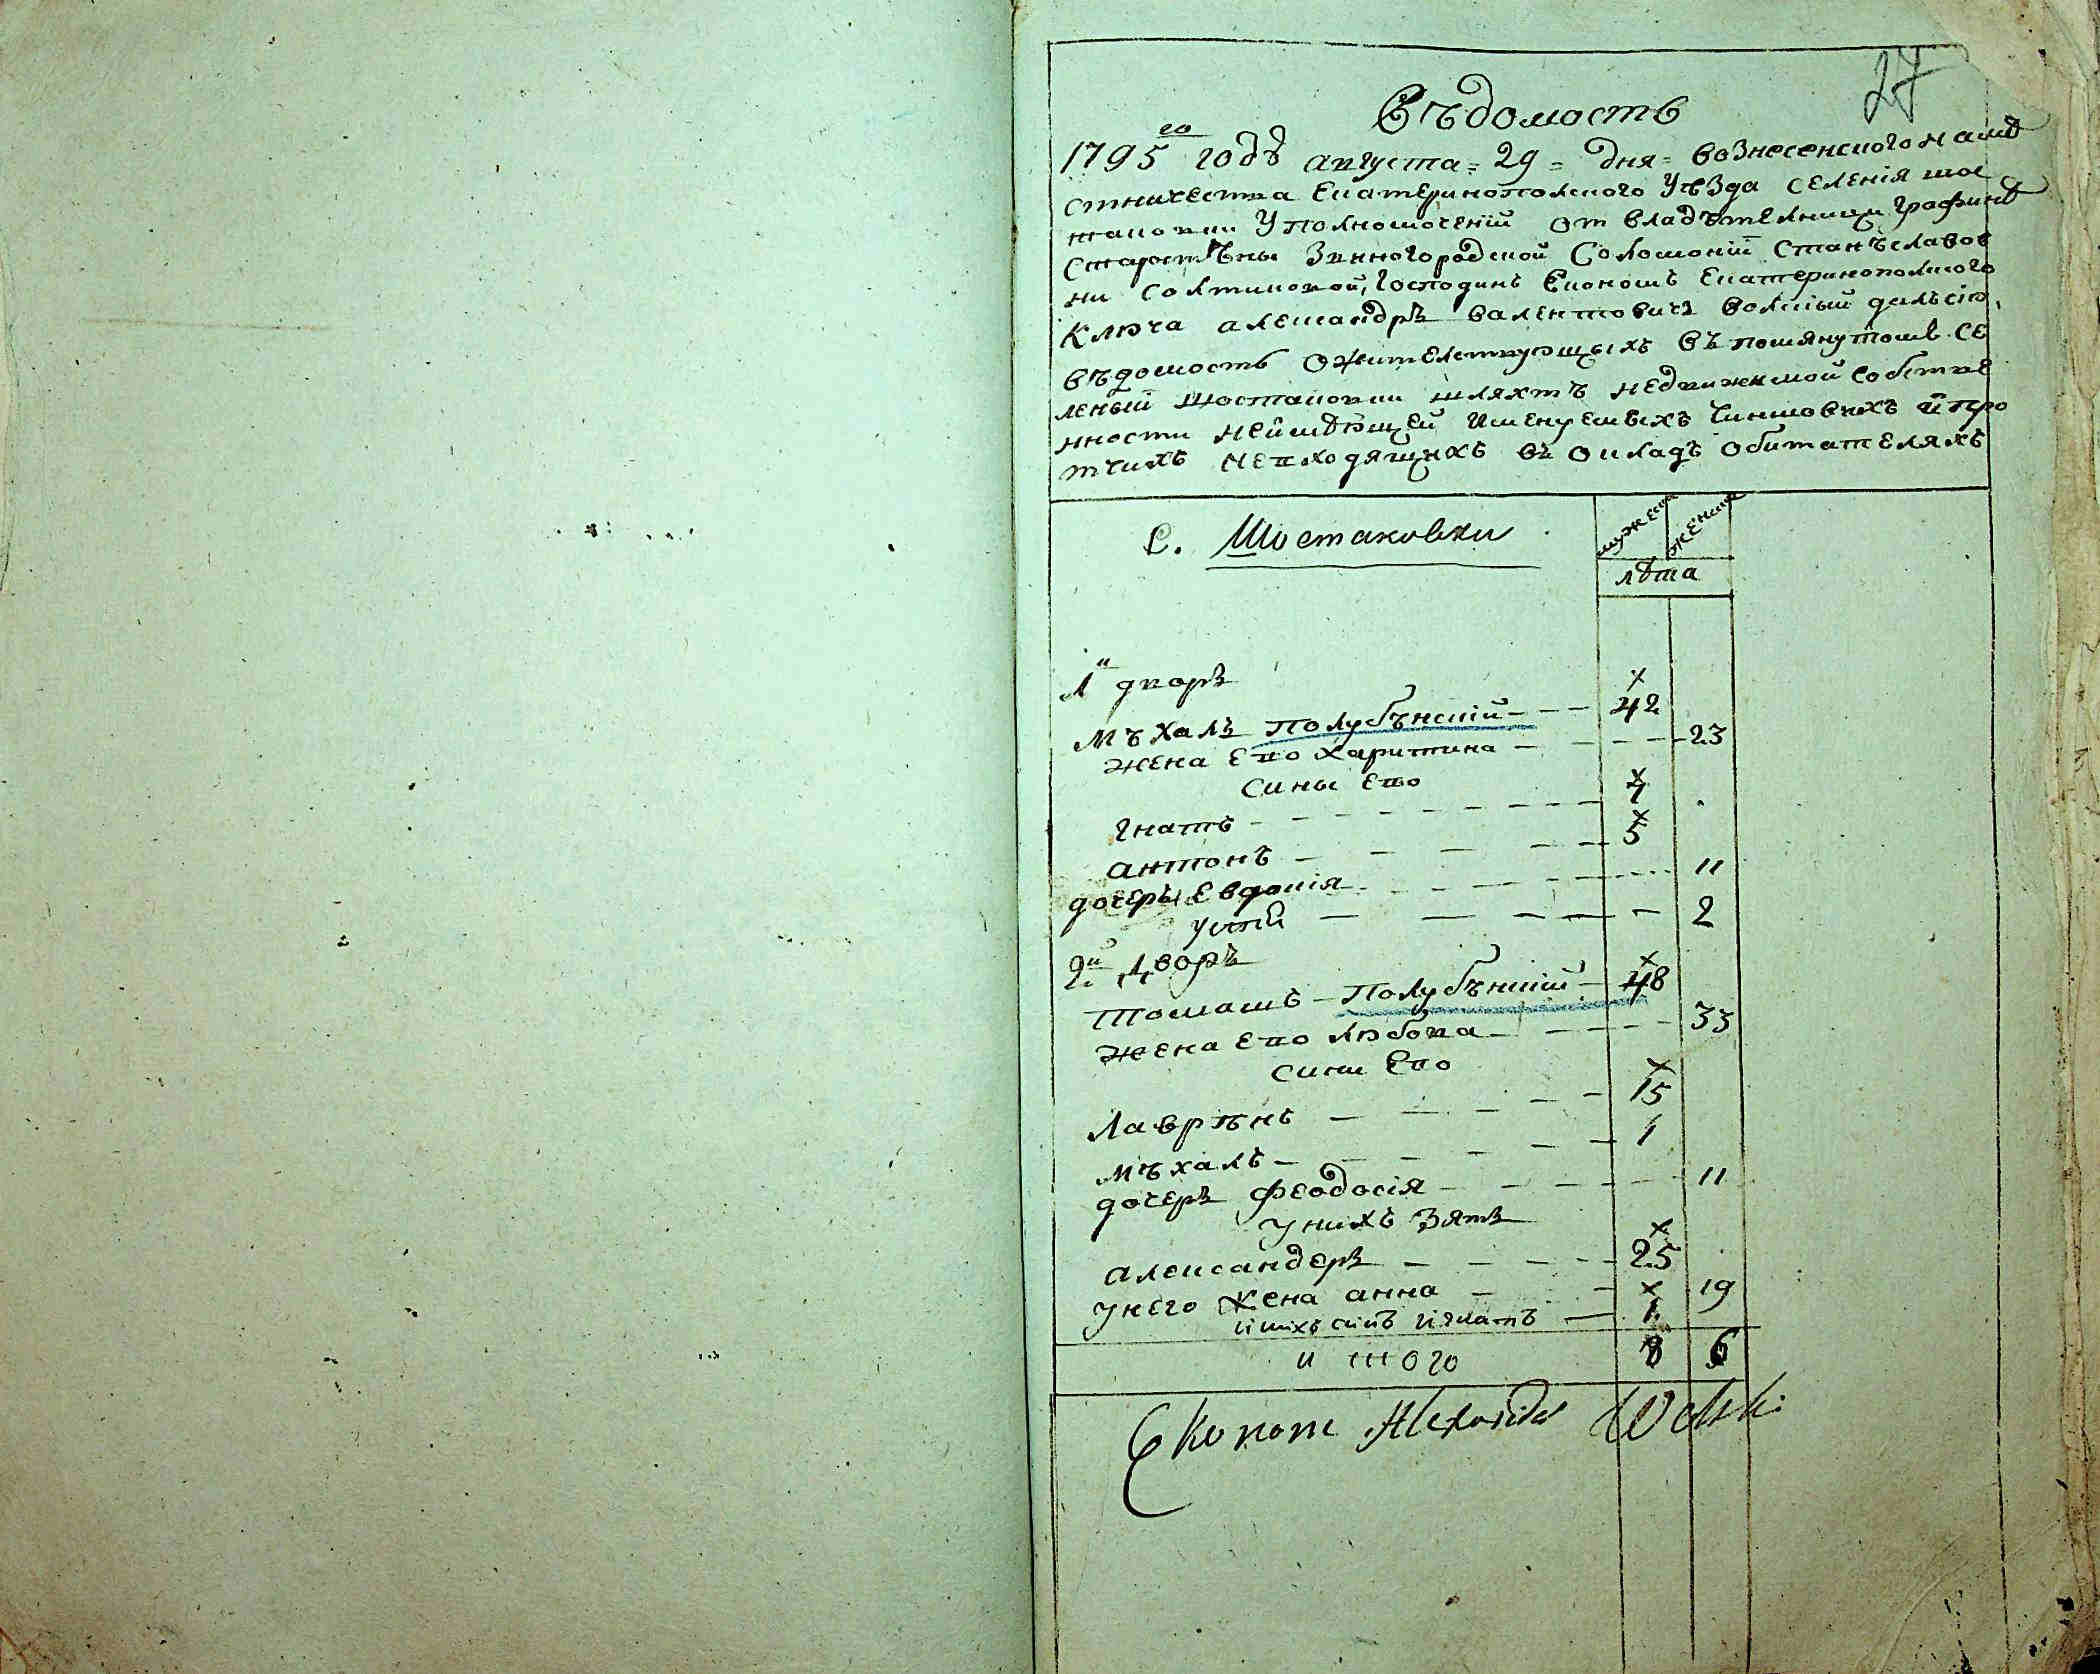 27
Вѣдомость
1795го годѣ августа = 29 = дня = вознесенского намѣ
стничества Екатеринополского Уѣзда селенія шос
таковки Уполномоченій от владѣтелници Графинѣ
старостѣны Звиногородской Соломонїи Станѣславов
ни Солтиковой, Господинъ Економъ Екатеринополского
Ключа александръ валентовичъ волскій
вѣдомость о жителствующыхъ въ помянутомъ се
леныи Шостаковки шляхтѣ недвижимой собстве
нности неимѣющей Именуемыхъ чиншовыхъ и про
тчихъ невходящихъ въ окладъ обитателяхъ
С. Шостаковки
мужеска женска
лѣта
1й дворъ
Мѣхалъ Полубѣнскій - - - 42
жена его Харитина - - - - 23
сины его
Гнатъ - - - - - - - 7
антонъ - - - - - 5
дочеры Евдокія - - - - - 11
устя - - - - - 2
2й Дворъ
Томашъ - Полубѣнскій - 48
жена его Любова - - - - 33
сини Его
Лаврѣнъ - - - - - 15
мѣхалъ - - - - - 1
дочеръ Феодосія - - - - - 11
у нихъ Зять
александеръ - - - - - 25
у него жена анна - - - 19
ихъ синъ Игнатъ - 1
итого 8 6
Ekonom Alexander Wolski